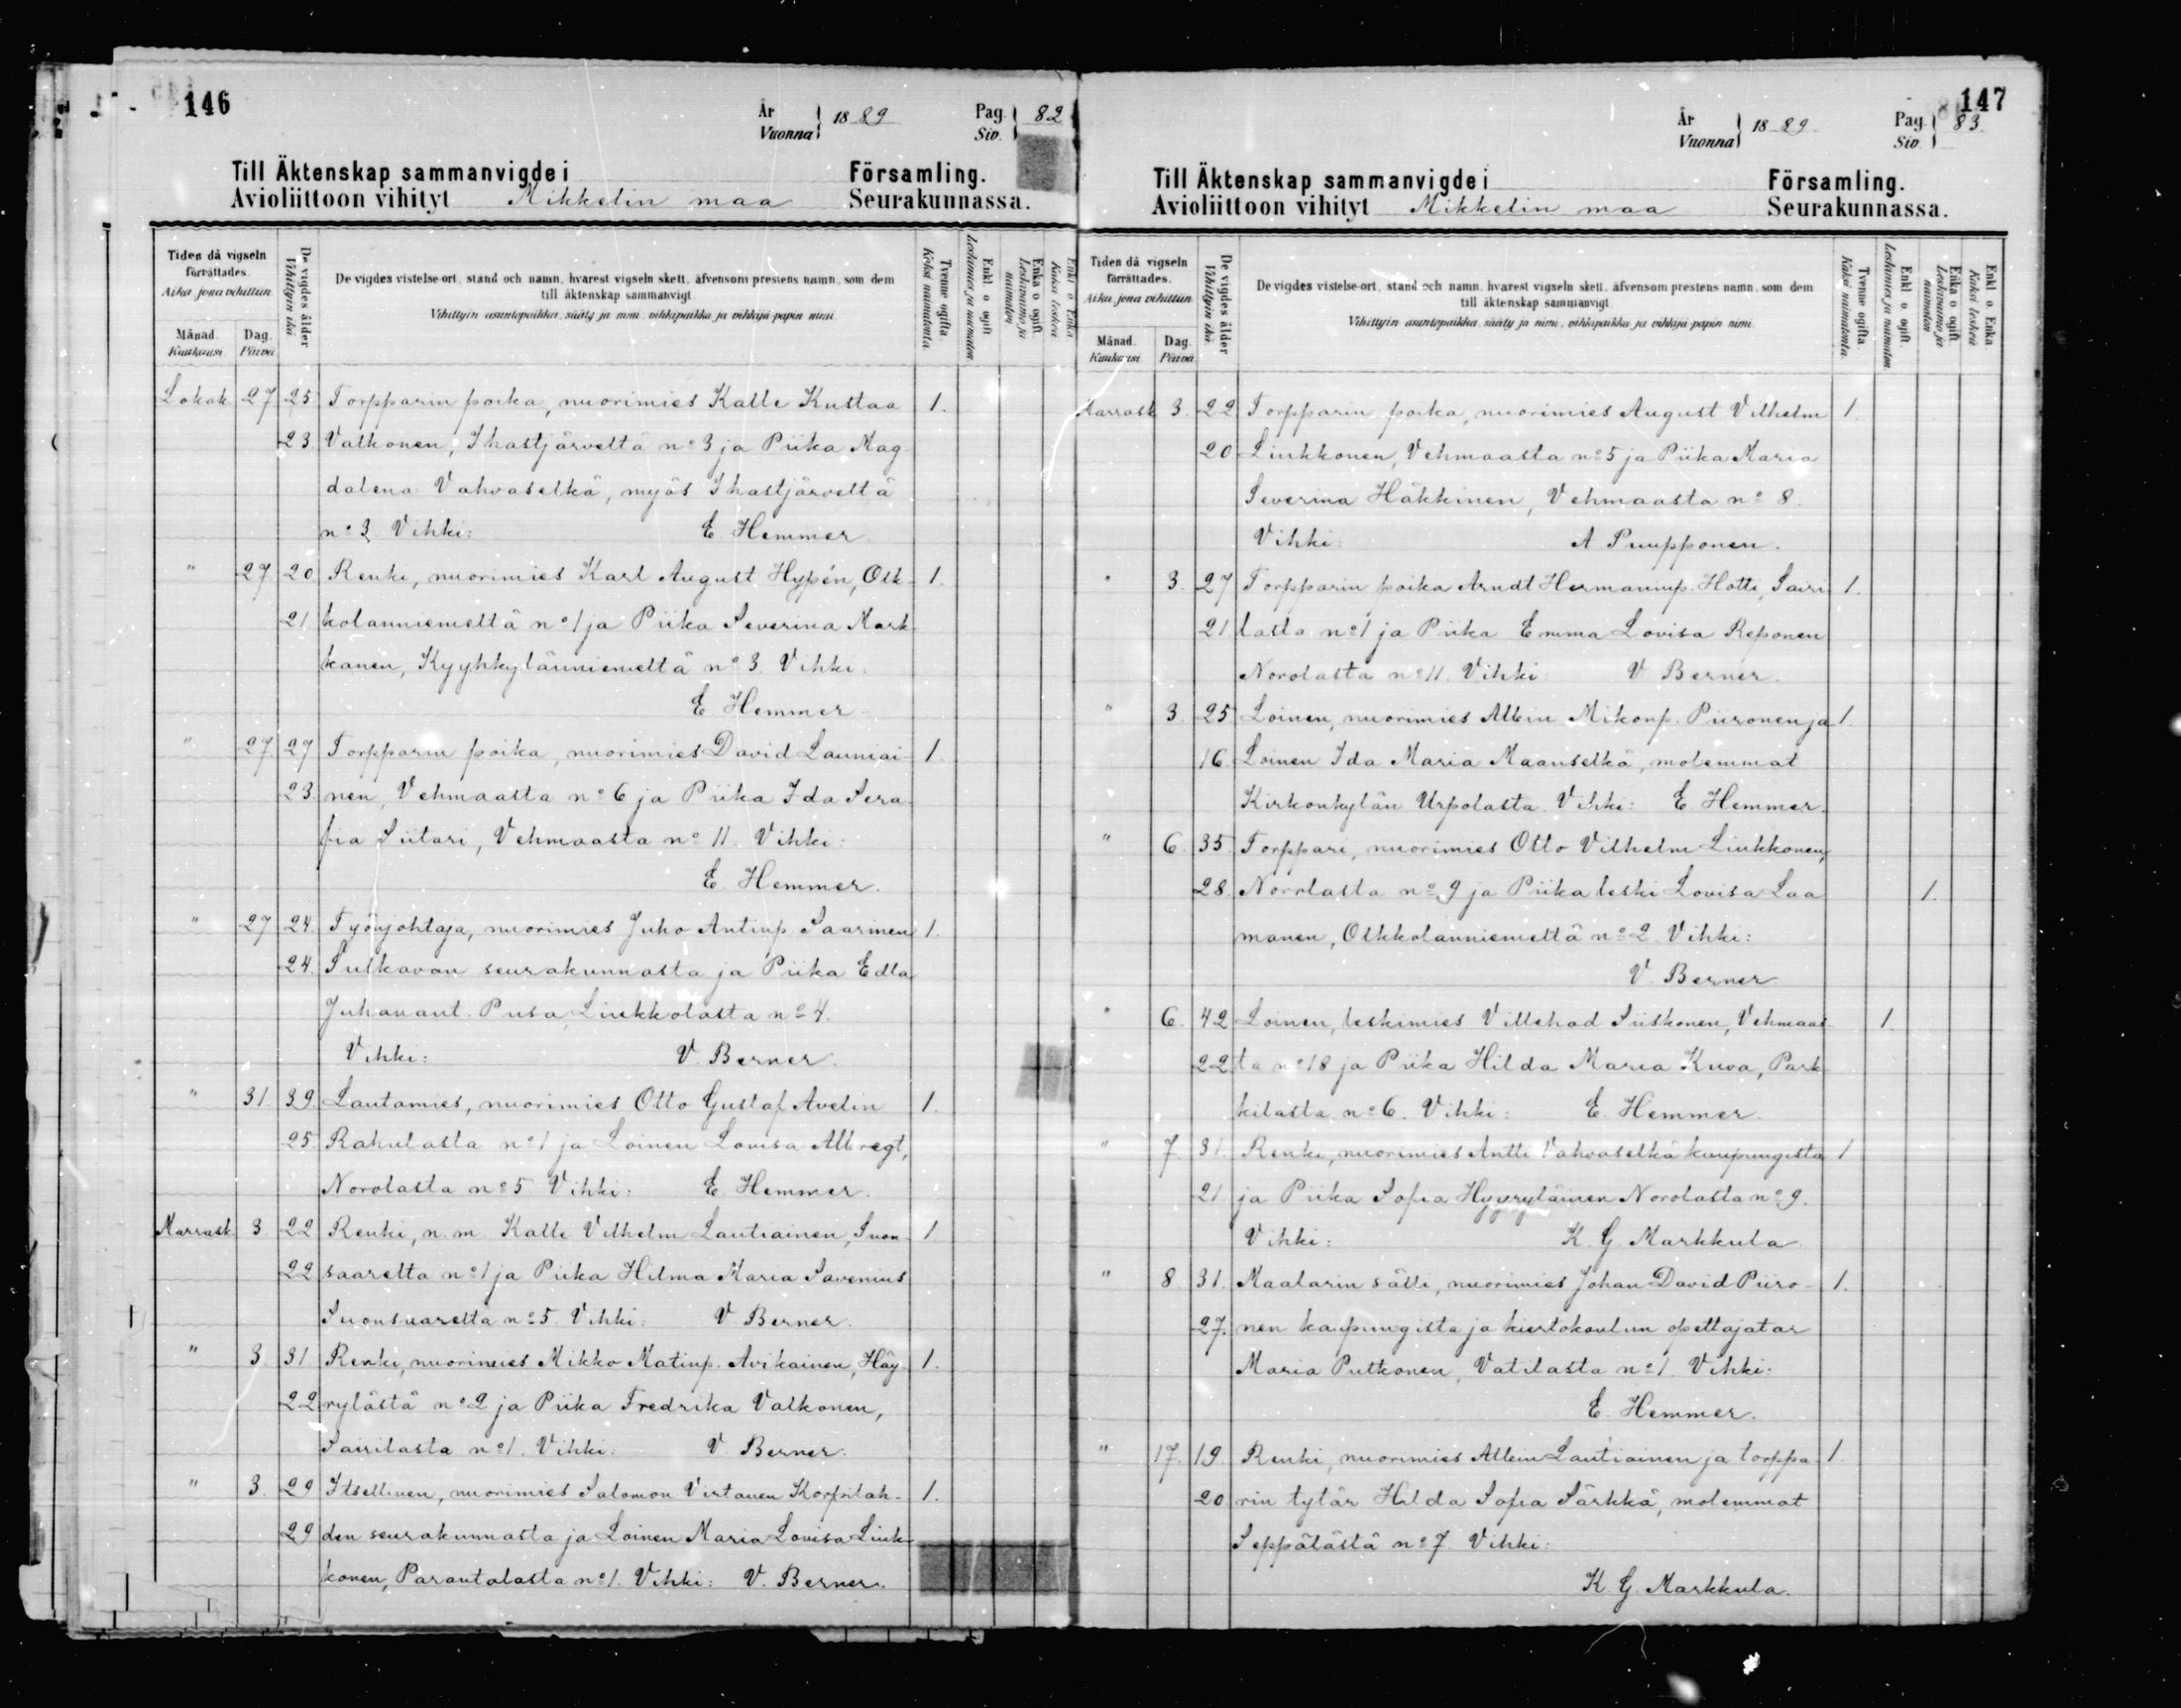 146
År
Vuonna 1889
Pag.
Siv. 82
Till Äktenskap sammanvigde i Församling.
Avioliittoon vihityt Mikkelin maa Seurakunnassa.
Tiden då vigseln förrättades.
Aika jona vihittiin
Månad. Kuukausi
Dag. Päivä
De vigdes ålder
Vihittyin ikä
De vigdes vistelse-ort, stånd och namn, hvarest vigseln skett, äfvensom prestens namn, som dem
till äktenskap sammanvigt.
Vihittyin asuntopaikka, sääty ja nimi, vihkipaikka ja vihkijä-papin nimi.
Tvenne ogifta.
Kaksi naimatonta.
Enkl. o. ogift.
Leskimies ja naimaton.
Enka o. ogift.
Leskivaimo ja naimaton
Enkl. o. Enka
Kaksi leskeä
Lokak 27 25 Torpparin poika, nuorimies Kalle Kustaa 1.
23 Valkonen, Ihastjärveltä nº 3 ja Piika Mag-
dalena Vahvaselkä, myös Ihastjärveltä
nº 3. Vihki: E. Hemmer.
" 27 20 Renki, nuorimies Karl August Hypén, Olk- 1.
21 kolanniemeltä nº 1 ja Piika Severina Mark-
kanen, Kyyhkylänniemeltä nº 3. Vihki.
E Hemmer
" 27. 27 Torpparin poika, nuorimies David Launiai- 1.
23. nen, Vehmaasta nº 6 ja Piika Ida Sera-
fia Siitari, Vehmaasta nº 11. Vihki:
E. Hemmer.
" 27 24. Työnjohtaja, nuorimies Juho Antinp. Saarinen 1.
24. Sulkavan seurakunnasta ja Piika Edla
Juhanant. Pusa, Liukkolasta nº 4.
Vihki: V. Berner.
" 31. 39. Lautamies, nuorimies Otto Gustaf Avelin 1.
25. Rahulasta nº 1 ja Loinen Lovisa Albregt,
Norolasta nº 5 Vihki: E. Hemmer.
Marrask. 3. 22 Renki, n.m. Kalle Vilhelm Lautiainen, Suon- 1.
22 saarelta nº 1 ja Piika Hilma Maria Savenius
Suonsaarelta nº 5. Vihki: V. Berner.
" 3. 31 Renki, nuorimies Mikko Matinp. Avikainen, Häy- 1.
22 rylästä nº 2 ja Piika Fredrika Valkonen,
Sairilasta nº 1. Vihki: V. Berner.
" 3. 29 Itsellinen, nuorimies Salomon Virtanen Korpilah- 1.
29 den seurakunnasta ja Loinen Maria Lovisa Liuk-
konen, Parantalasta nº 1. Vihki: V. Berner.
147
År
Vuonna 1889.
Pag.
Siv. 83.
Till Äktenskap sammanvigde i Församling.
Avioliittoon vihityt Mikkelin maa Seurakunnassa.
Tiden då vigseln förrättades.
Aika, jona vihittiin
Månad. Kuukausi
Dag. Päivä
De vigdes ålder
Vihittyin ikä
De vigdes vistelse-ort, stånd och namn, hvarest vigseln skett, äfvensom prestens namn, som dem
till äktenskap sammanvigt.
Vihittyin asuntopaikka, sääty ja nimi, vihkipaikka ja vihkijä-papin nimi.
Tvenne ogifta.
Kaksi naimatonta.
Enkl. o. ogift.
Leskimies ja naimaton.
Enka o. ogift.
Leskivaimo ja naimaton
Enkl. o. Enka.
Kaksi leskeä
Marrask 3. 22 Torpparin poika, nuorimies August Vilhelm 1.
20 Liukkonen, Vehmaasta nº 5 ja Piika Maria
Severina Häkkinen, Vehmaasta nº 8.
Vihki: A Puupponen.
" 3. 27 Torpparin poika Arndt Hermanninp. Hotti, Sairi- 1.
21 lasta nº 1 ja Piika Emma Lovisa Reponen
Norolasta nº 11. Vihki: V Berner.
" 3. 25 Loinen, nuorimies Albin Mikonp. Piironen ja 1.
16. Loinen Ida Maria Maanselkä, molemmat
Kirkonkylän Urpolasta. Vihki: E Hemmer.
" 6. 35. Torppari, nuorimies Otto Vilhelm Liukkonen,
28. Norolasta nº 9 ja Piika leski Lovisa Laa 1.
manen, Olkkolanniemeltä nº 2. Vihki:
V. Berner
" 6. 42 Loinen, leskimies Villehad Siiskonen, Vehmaas- 1.
22 ta nº 18 ja Piika Hilda Maria Kuva, Park-
kilasta nº 6. Vihki: E. Hemmer.
" 7. 31. Renki, nuorimies Antti Vahvaselkä kaupungista 1
21. ja Piika Sofia Hyyryläinen Norolasta nº 9.
Vihki: K. G. Markkula.
" 8. 31. Maalarin sälli, nuorimies Johan David Piiro- 1.
27. nen kaupungista ja kiertokoulun opettajatar
Maria Putkonen, Vatilasta nº 1. Vihki:
E. Hemmer.
" 17. 19. Renki, nuorimies Albin Lautiainen ja torppa- 1.
20 rin tytär Hilda Sofia Särkkä, molemmat
Seppälästä nº 7. Vihki:
K. G. Markkula.